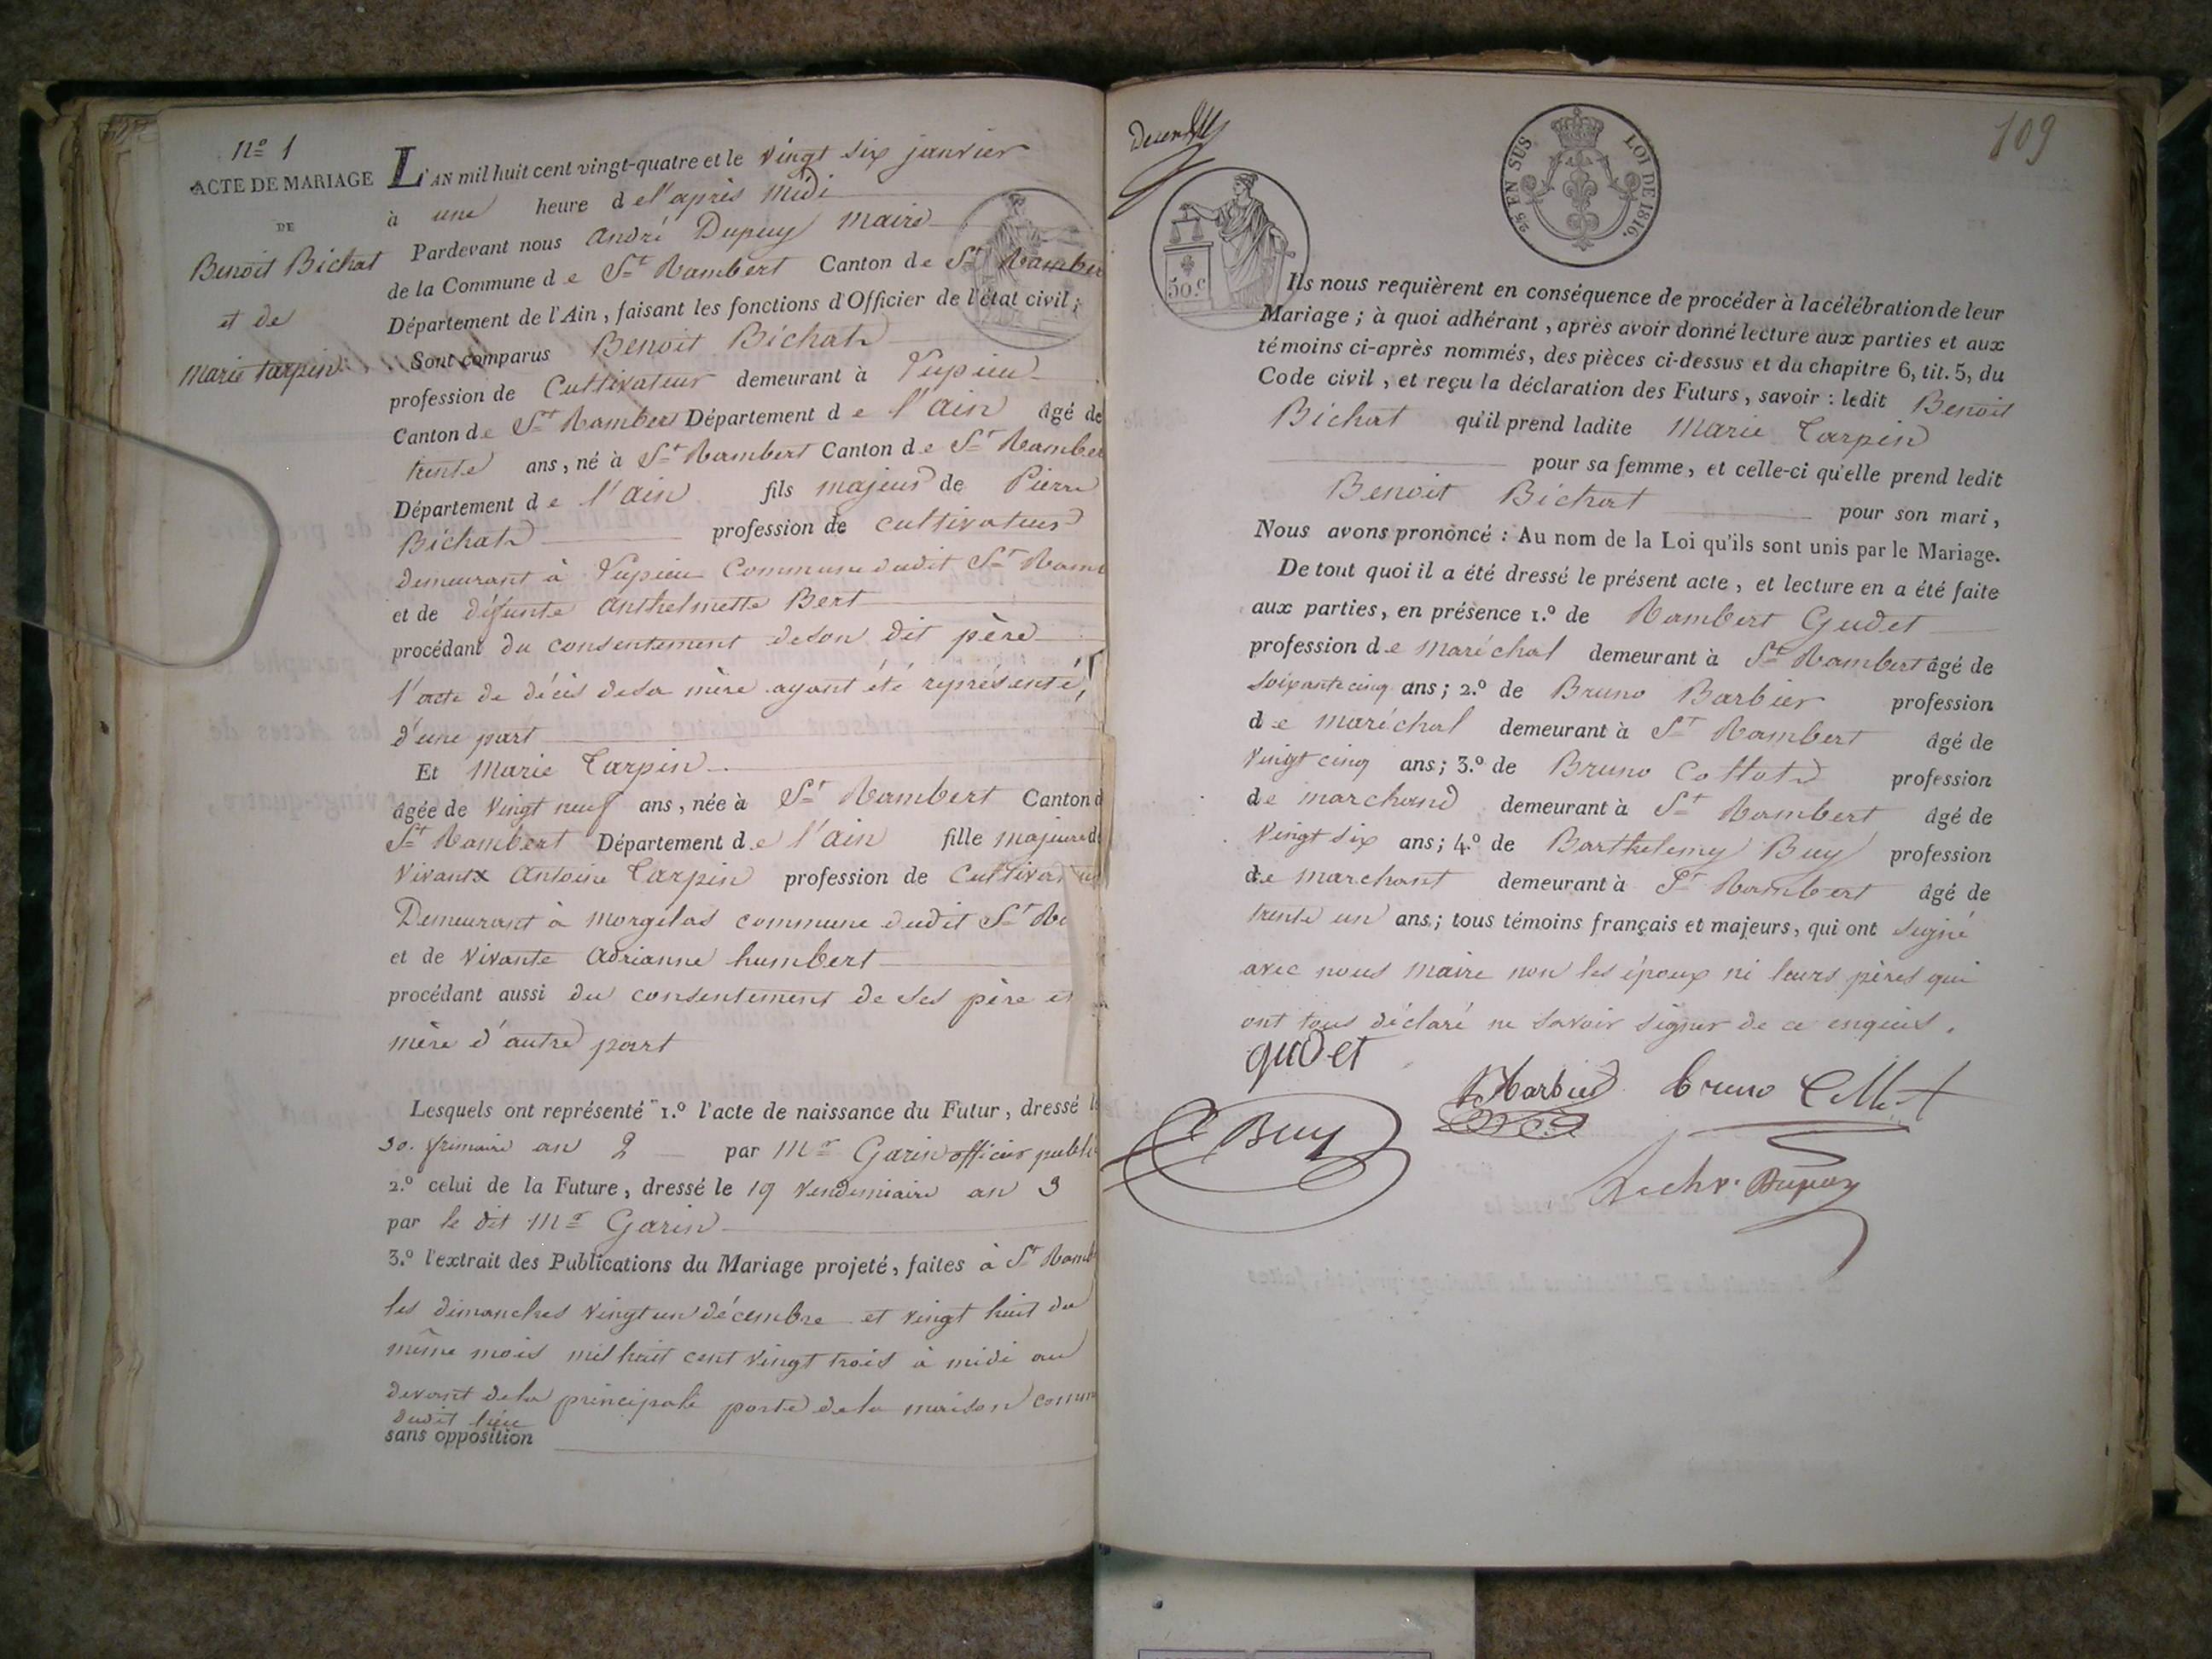 N.º 1
ACTE DE MARIAGE
DE
Benoit Bichat
et de
Marie tarpin
L'AN mil huit cent vingt-quatre et le vingt six janvier
à une heure de l'après midi
Pardevant nous André Dupuy maire
de la Commune de St Rambert Canton de St Ramber
Département de l'Ain, faisant les fonctions d'Officier de l'état civil ;
Sont comparus Benoit Bichat
profession de Cultivateur demeurant à Vupieu
Canton de St Rambert Département de l'ain âgé de
trente ans, né à St Rambert Canton de St Rambe
Département de l'ain fils majeur de Pierre
Bichat profession de cultivateur
demeurant à Vupieu Commune dudit St Ram
et de défunte Anthelmette Bert
procédant du consentement de son dit père
l'acte de décès de sa mère ayant été représenté,
d'une part
Et Marie Tarpin
âgée de vingt neuf ans, née à St Rambert Canton d
St Rambert Département de l'ain fille majeure d
vivant Antoine Tarpin profession de Cultivateur
Demeurant à morgelas commune dudit St Ra
et de vivante Adrianne humbert
procédant aussi du consentement de ses père et
mère d'autre part
Lesquels ont représenté 1.º l'acte de naissance du Futur, dressé le
30. frimaire an 2 par Mr Garin officier publi
2.º celui de la Future, dressé le 19 Vendemiaire an 3
par le dit Mr Garin
3.º l'extrait des Publications du Mariage projeté, faites à St Ramb
les dimanches vingt un décembre et vingt huit du
même mois mil huit cent vingt trois à midi au
devant de la principale porte de la maison comm
dudit lieu
sans opposition
109
25 EN SUS
LOI DE 1816.
50.c
Ils nous requièrent en conséquence de procéder à la célébration de leur
Mariage ; à quoi adhérant, après avoir donné lecture aux parties et aux
témoins ci-après nommés, des pièces ci-dessus et du chapitre 6, tit. 5, du
Code civil, et reçu la déclaration des Futurs, savoir : ledit Benoit
Bichat qu'il prend ladite Marie Tarpin
pour sa femme, et celle-ci qu'elle prend ledit
Benoit Bichat pour son mari,
Nous avons prononcé : Au nom de la Loi qu'ils sont unis par le Mariage.
De tout quoi il a été dressé le présent acte, et lecture en a été faite
aux parties, en présence 1.º de Rambert Gudet
profession de maréchal demeurant à St Rambert âgé de
soixante cinq ans ; 2.º de Bruno Barbier profession
de maréchal demeurant à St Rambert âgé de
vingt cinq ans ; 3.º de Bruno Collet profession
de marchand demeurant à St Rambert âgé de
vingt six ans ; 4.º de Barthelemy Buy profession
de marchant demeurant à St Rambert âgé de
trente un ans ; tous témoins français et majeurs, qui ont signé
avec nous maire non les époux ni leurs pères qui
ont tous déclaré ne savoir signer de ce enquis.
gudet
Barbier bruno Collet
Buy
Dupuy